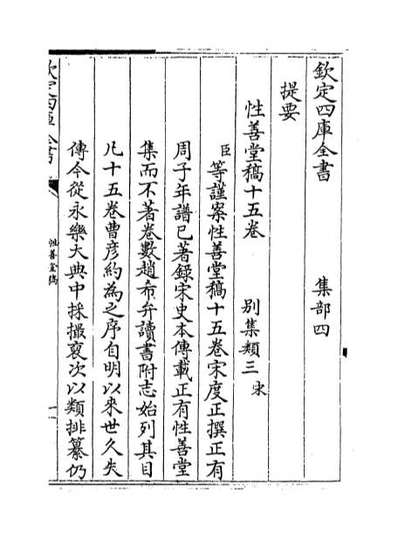 欽定四庫全書　　　　集部四
提要
性善堂稿十五卷　　別集類三宋
臣等謹案性善堂稿十五卷宋度正撰正有
周子年譜已著錄宋史本傳載正有性善堂
集而不著卷數趙希弁讀書附志始列其目
凡十五卷曹彦約為之序自明以來世久失
傳今從永樂大典中採撮裒次以類排纂仍
欽定四庫全書
性善堂稿
一